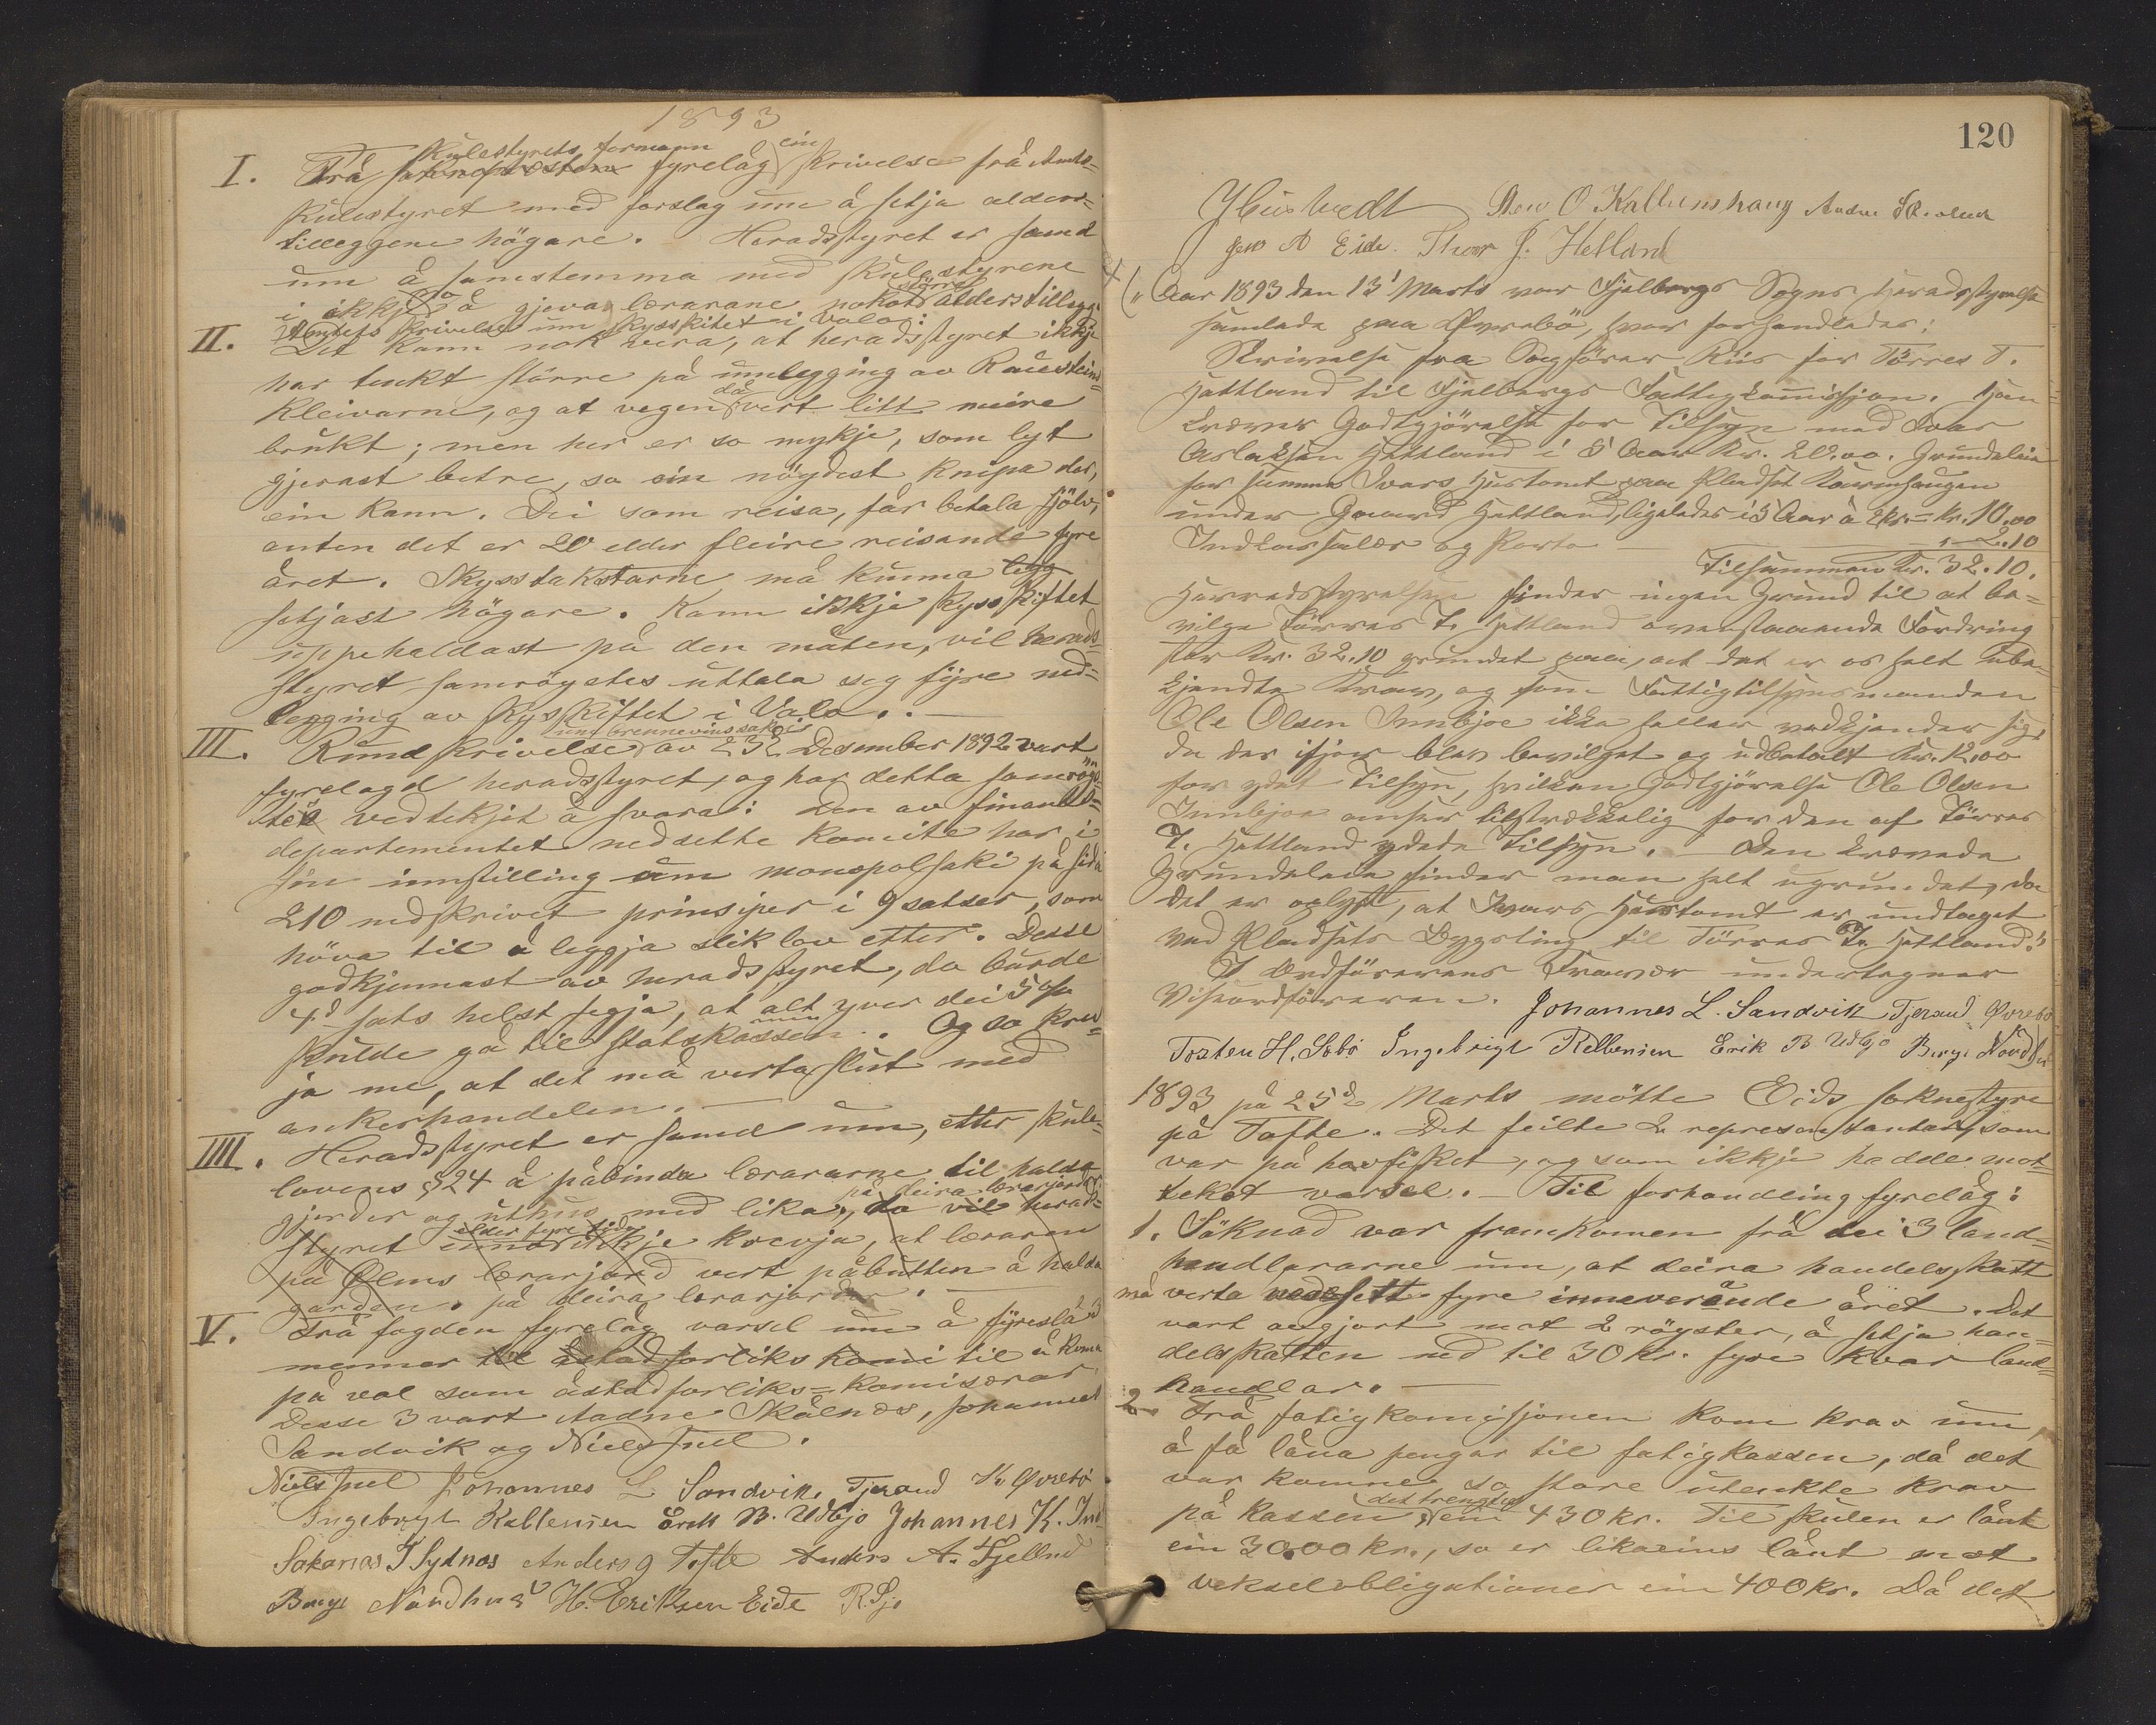 1893
I. Frå skulestyrets formann fyrelåg ein skrivelse frå Amts-
skulestyret med forslag um å setja alders-
tilleggene högare. Heradsstyret er samd
um å samstemma med skulestyrene
i ikkje no å gjeva lærarane nokot större alderstillegg.
II. Amtets skrivelse um skysskiftet i Valo:
Det kann nok vera, at heradsstyret ikkje
har tenkt större på umlegging av Rauestein-
kleivarne, og at vegen då vert litt meire
brukt; men her er so mykje, som lyt
gjerast betre, so ein nöydest knipa der,
ein kann. Dei som reisa, får betala sjölv,
anten det er 20 elder fleire reisande fyre
året. Skysstakstarne må kunna legg
setjast högare. Kann ikkje skysskiftet
uppehaldast på den måten, vil herads-
styret samröystes uttala seg fyre ned-
legging av skysskiftet i Valo.
III. Rundskrivelse um brennevinssaki av 23d Desember 1892 vart
fyrelagd heradsstyret, og har detta samröys-
tes vedtekjet å svara: Den av finants-
departementet nedsette komite har i
sin innstilling um monopolsaki på sida
210 nedskrivet prinsiper i 9 satser, som
höva til å leggja slik lov etter. Desse
godkjennast av heradsstyret, do burde
4d sats helst segja, at alt yver dei 5 %
skulde gå til statskassen. Og so krev-
ja me, at det må verta slut med
ankerhandelen.
IIII. Heradsstyret er samd um, etter skule-
lovens §24 å påbinda lærararne til halda
gjerder og uthus med lika på deira lærarjorder, do vil herad-
styret elder fyre tida ikkje krevja, at læraren
på Ølens lærarjord vert påbutten å halda
garden. på deira lærarjorder.
V. Frå fogden fyrelåg varsel um å fyreslå 3
menner til åstadforliks komi til å koma
på val som åstadforliks-komisærar.
Desse 3 vart Aadne Skålnes, Johannes
Sandvik og Niels Juel.
Niels Juel Johannes L. Sandvik, Tjerand K. Øvrebö
Ingebrigt Kallevien Erik B. Udbjo Johannes K. In
Sakarias T Sydnes Anders G Tofte Anders A. Fjelland
Børge Nordhus H. Eriksen Eide R. Sjo
120
Sten O Kallunshaug
Jens A Eide. Thor J. Hetland
(" Aar 1893 den 13' Marts var Fjelbergs Sogns Heradsstyrelse
samlede paa Øvrebö, hvor forhandledes:
Skrivelse fra Sagförer Riis for Törres T.
Hattland til Fjelbergs Fattigkomission. Han
kræver Godtgjörelse for Tilsyn med Ivar
Aslaksen Hettland i 5 Aar Kr. 20.00. Grundeleie
for samme Ivars Hustomt paa Pladset
under Gaard Hettland, ligeledes i 5 Aar à 2 kr. = kr. 10.00
og Porto 2.10
Tilsammen Kr. 32.10.
Herredsstyrelsen finder ingen Grund til at be-
vilge Törres T. Hettland ovenstaaende Fordring
stor Kr. 32.10 grundet paa, at det er os helt ube-
kjendte Krav, og som Fattigtilsynsmanden
Ole Olsen Innbjoe ikke heller vedkjender sig,
da der ifjor blev bevilget og udbetalt Kr. 12,00
for ydet Tilsyn, hvilken Godtgjörelse Ole Olsen
Innbjoe anser tilstrækkelig for den af Törres
T. Hettland ydede Tilsyn. Den krævede
Grundeleie finder man helt ugrundet, da
det er oplyst, at Ivars Hustomt er undtaget
ved Pladsets Bygsling til Törres T. Hettland."
I Ordförerens Fravær undertegner
Viseordföreren. Johannes L. Sandvik Tjerand Øvrebö
Tosten H. Æbö Ingebrigt Kallevien Erik B Udbjo Børge Nordhus
1893 på 25d Marts mötte Eids soknestyre
på Tofte. Det feilte 2 representantar, som
var på havfisket, og som ikkje hadde mot-
teket varsel. - Til forhandling fyrelåg:
1. Söknad var framkomen frå dei 3 land-
handlararne um, at deira handelsskatt
må verta nedsett fyre inneverånde året. Det
vart avgjort mot 2 röyster, å setja han-
delsskatten ned til 30 kr. fyre kvar land-
handlar.
2 Frå fatigkomisjonen kom krav um
å få låna pengar til fatigkassen, då det
var komne so store utenkte krav
på kassen det trengtes ein 430 kr. Til skulen er lånt
ein 3000 kr., so er likarins lånt mot
vekselobligationer ein 400 kr. Då det